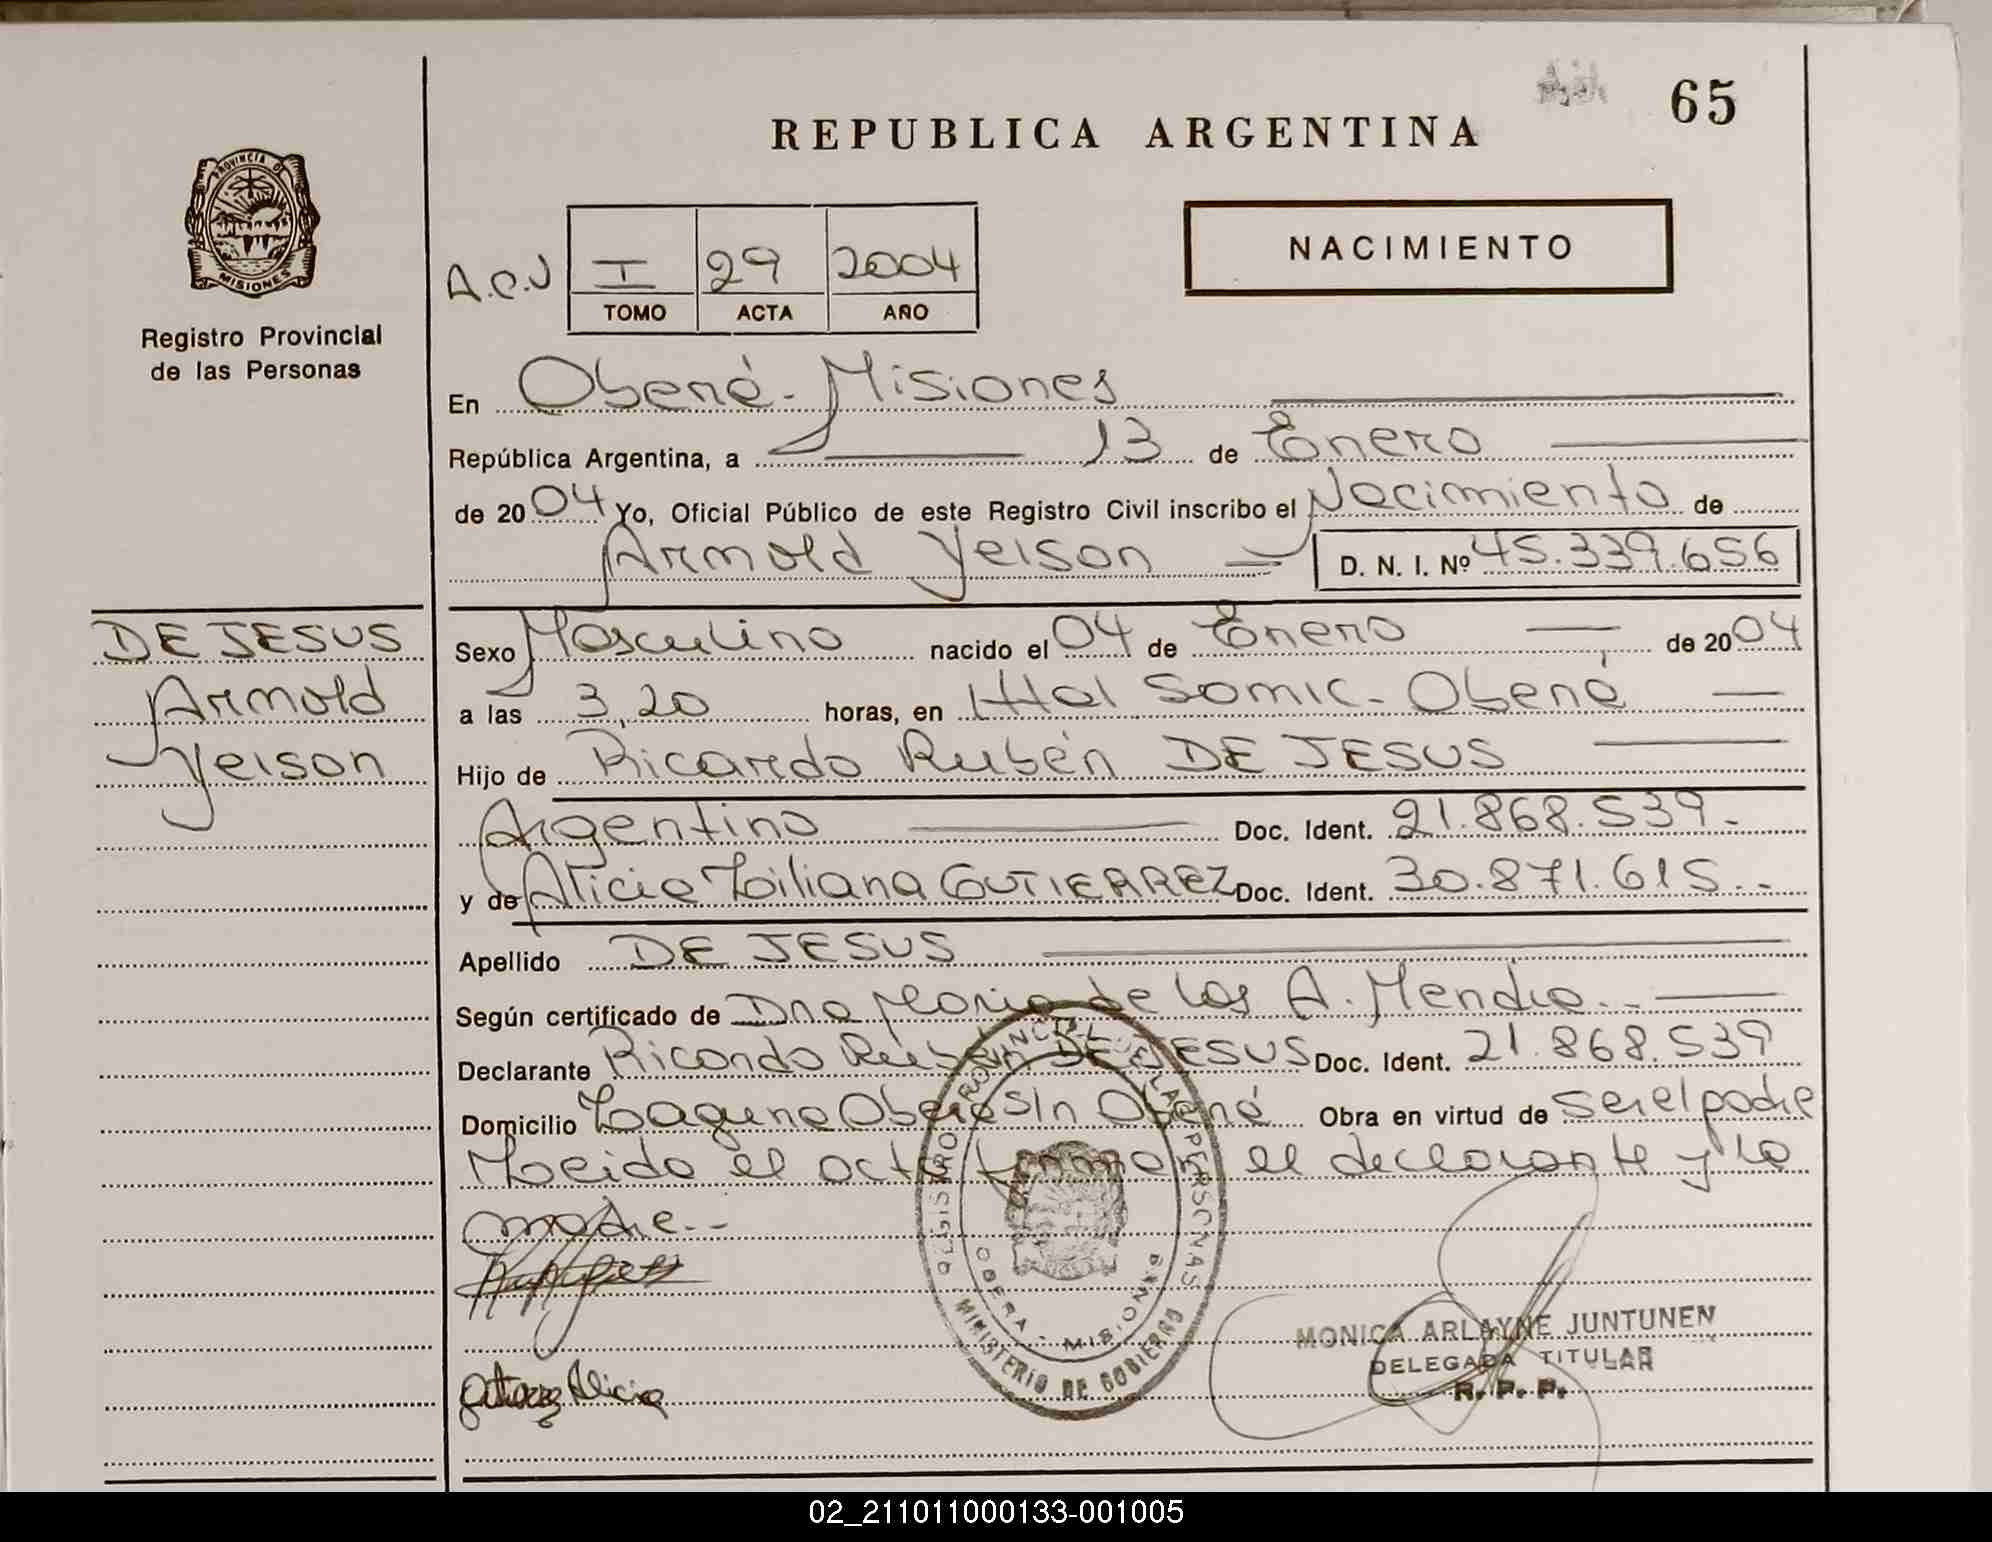 65
REPUBLICA ARGENTINA
PROVINCIA DE
MISIONES
Registro Provincial
de las Personas
NACIMIENTO
A.C.J I 29 2004
TOMO ACTA AÑO
En Oberá - Misiones
República Argentina, a 13 de Enero
de 2004 Yo, Oficial Público de este Registro Civil inscribo el Nacimiento de
Arnold Yeison D. N. I. Nº 45.339.656
DE JESUS
Arnold
Yeison
Sexo Masculino nacido el 04 de Enero de 2004
a las 3,20 horas, en Htal Samic - Oberá
Hijo de Ricardo Rubén DE JESUS
Argentino Doc. Ident. 21.868.539.-
y de Alicia Liliana GUTIERREZ Doc. Ident. 30.871.615.-
Apellido DE JESUS
Según certificado de Dra Maria de los A.
Declarante Ricardo Rubén DE JESUS Doc. Ident. 21.868.539
Domicilio Laguna Obera S/n Oberá Obra en virtud de ser el padre
Moeida el acta firman el declarante y la
madre.-
REGISTRO PROVINCIAL DE LAS PERSONAS
OBERA - MISIONES
MINISTERIO DE GOBIERNO
Alicia
MONICA ARLAYNE JUNTUNEN
DELEGADA TITULAR
R. P. P.
02_211011000133-001005